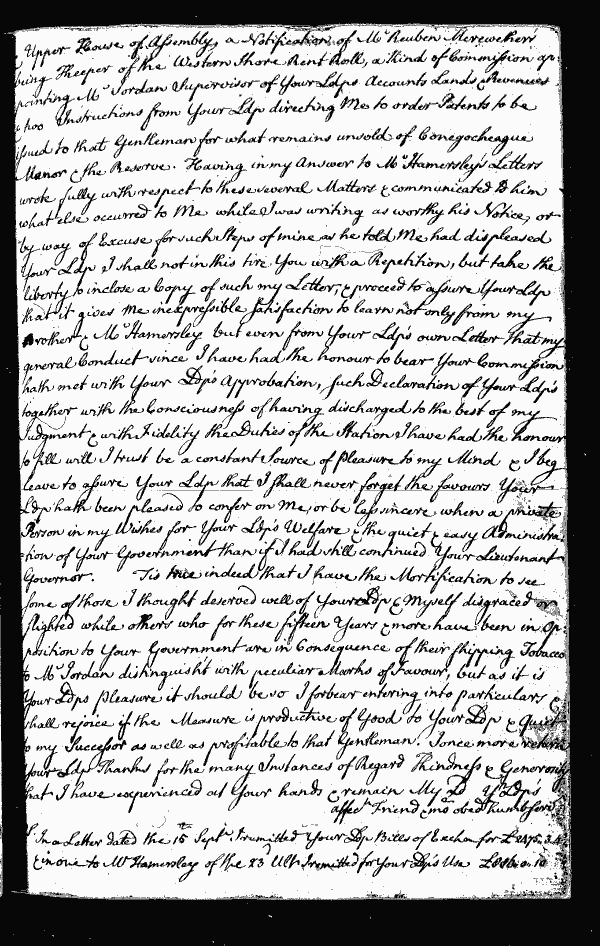 Upper House of Assembly, a Notification of Mr Reuben Merewethers
being Kheeper of the Western Shore Rent Roll, a kind of Commission ap
pointing Mr Jordan Supervisor of Your Ldps Accounts Lands & Revenues
& hoo Instructions from Your Ldp directing Me to order Patents to be
issued to that Gentleman for what remains unsold of Conegocheague
Manor & the Reserve. Having in my Answer to Mr Hamersley's Letters
wrote fully with respect to these several Matters & communicated to him
what else occurred to Me while I was writing as worthy his Notice, or
by way of Excuse for such Steps of mine as he told Me had displeased
Your Ldp I shall not in this tire You with a Repetition, but take the
liberty to inclose a Copy of such my Letter, & proceed to assure Your Ldp
that it gives Me inexpressible Satisfaction to learn not only from my
Brother & Mr Hamersley but even from Your Ldp's own Letter that my
general Conduct since I have had the honour to bear Your Commission
hath met with Your Ldp's Approbation, such Declaration of Your Ldp's
together with the Consciousness of having discharged to the best of my
Judgment & with Fidelity the Duties of the Station I have had the honour
to fill will I trust be a constant Source of Pleasure to my Mind & I beg
leave to assure Your Ldp that I shall never forget the favours Your
Ldp hath been pleased to confer on Me, or be less sincere when a private
Person in my Wishes for Your Ldp's Welfare & the quiet & easy Administra
tion of Your Government than if I had still continued Your Lieutenant
Governor. Tis true indeed that I have the Mortification to see
some of those I thought deserved well of Your Ldp & Myself disgraced or
slighted while others who for these fifteen Years & more have been in Op
position to Your Government are in Consequence of their shipping Tobacco
to Mr Jordan distinguisht with peculiar Marks of Favour, but as it is
Your Ldps pleasure it should be so I forbear entering into particulars &
shall rejoice if the Measure is productive of Good to Your Ldp & Quiet
to my Successor as well as profitable to that Gentleman. I once more return
Your Ldp Thanks for the many Instances of Regard Kindness & Generosity
that I have experienced at Your hands & remain My Ld Yr Ldp's
affect Friend & mo obedt humb Servt
In a Letter dated the 15th Septr I remitted Your Ldp Bills of Exchan for
& in one to Mr Hamersley of the 23 Ult I remitted for Your Ldp's Use